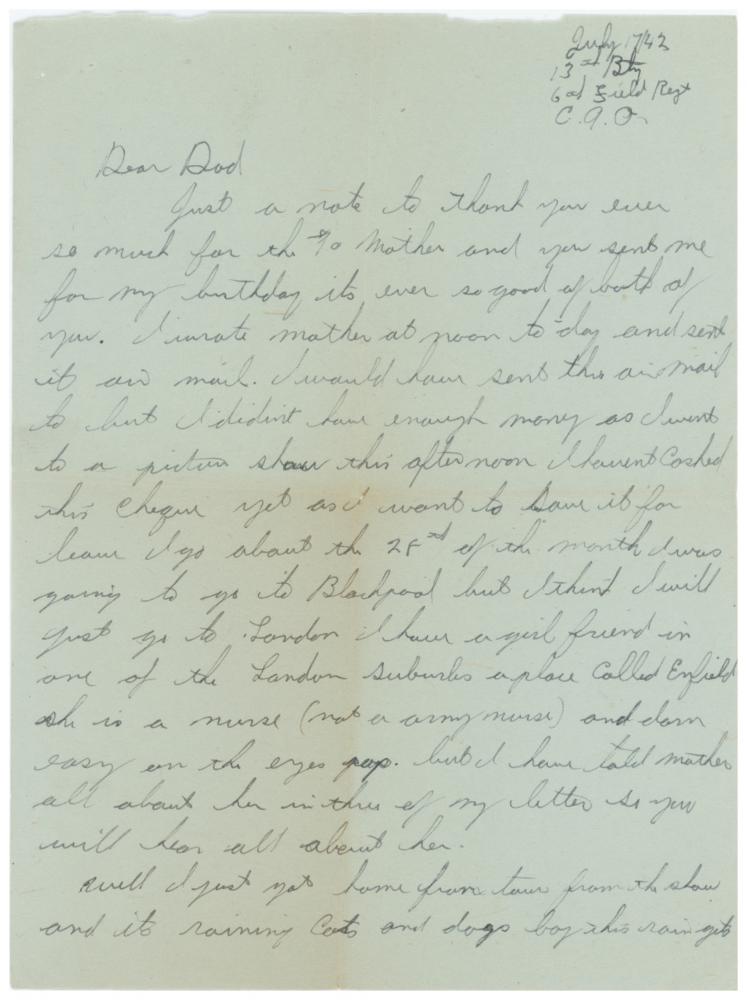 July 17/42
13th Bty
6th Field Regt
C.A.O.
Dear Dad
Just a note to thank you ever
so much for the $10 Mother and you sent me
for my birthday its ever so good of both of
you. I wrote mother at noon to-day and sent
it air mail. I would have sent this air mail
to but I did'nt have enough money as I went
to a picture show this afternoon I havent Cashed
this Cheque yet as I want to save it for
leave I go about the 28th of the month I was
going to go to Blackpool but I think I will
just go to London I have a girl friend in
one of the London suburbs a place Called Enfield
she is a nurse (not a army nurse) and darn
easy on the eyes pop. but I have told mother
all about her in three of my letter so you
will hear all about her.
Well I just got home from town from the show
and its raining Cats and dogs boy this rain gets